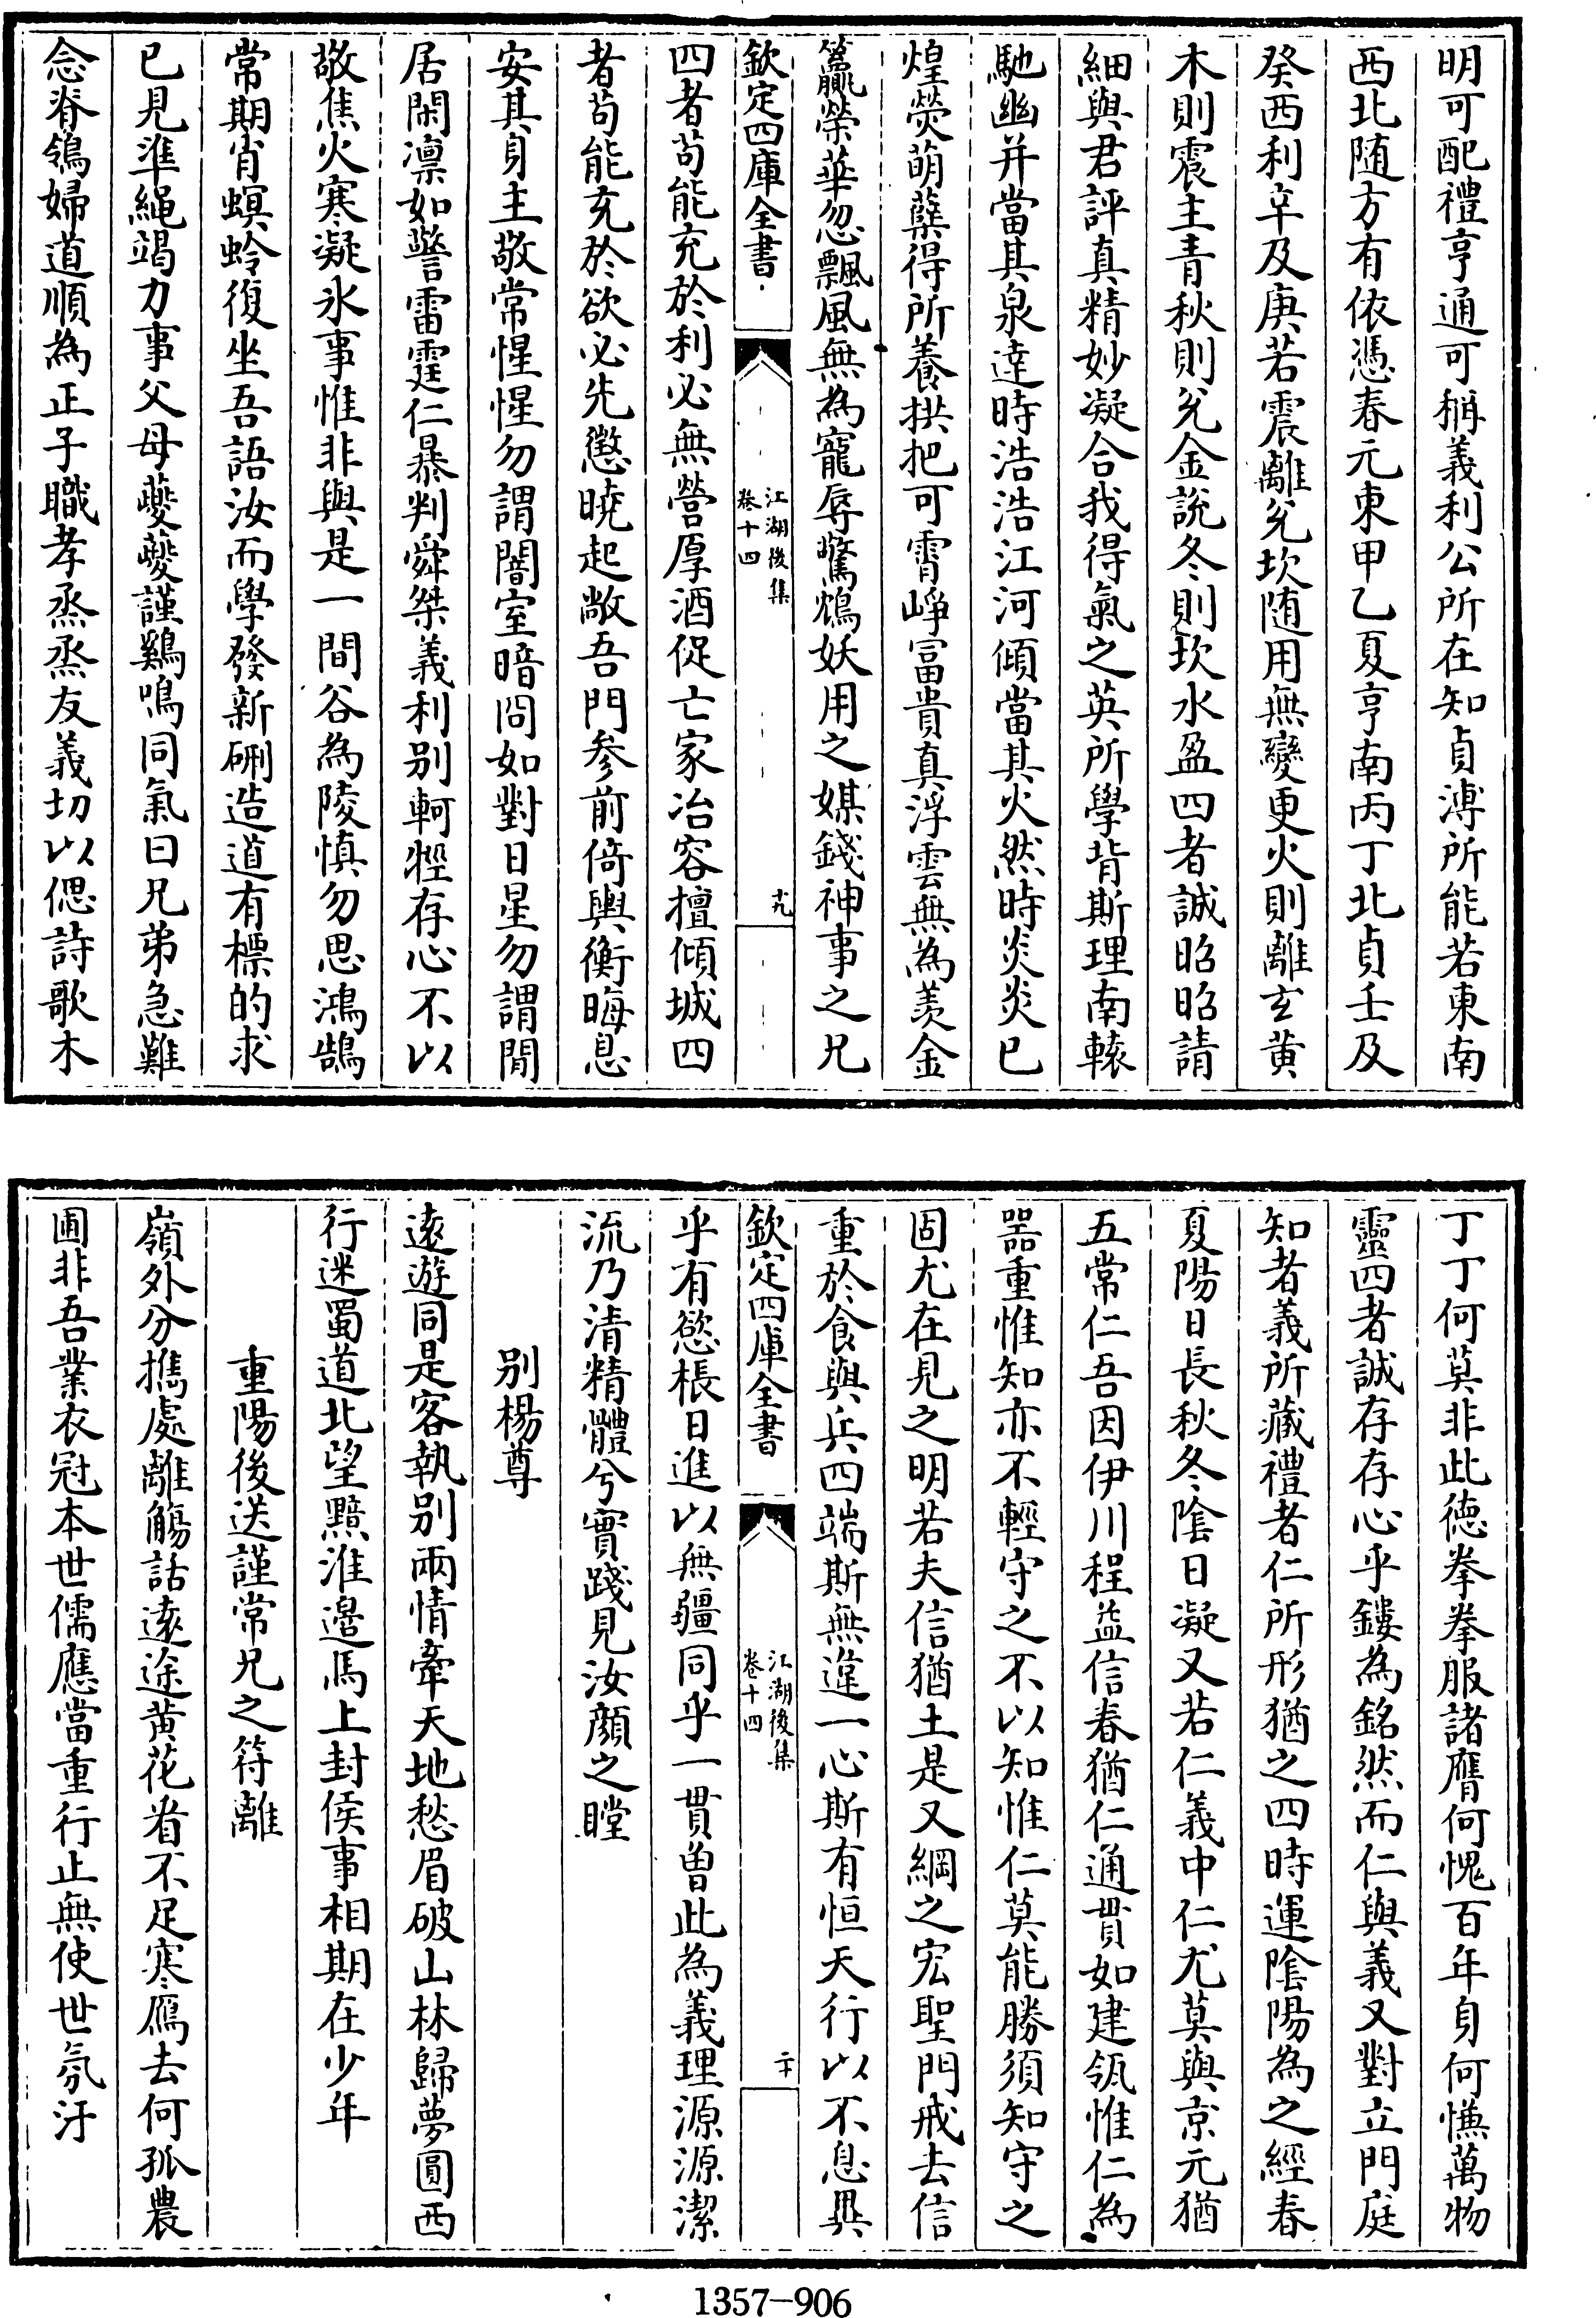 明可配禮亨通可稱義利公所在知貞溥所能若東南
西北随方有依憑春元東甲乙夏亨南丙丁北貞壬及
癸西利辛及庚若震離兊坎随用無變更火則離玄黄
木則震主青秋則兊金說冬則坎水盈四者誠昭昭請
細與君評真精妙凝合我得氣之英所學背斯理南轅
馳幽并當其泉達時浩浩江河傾當其火然時炎炎已
煌熒萌蘗得所養拱把可霄崢冨貴真浮雲無為羡金
籯榮華忽飄風無為寵辱驚鴆妖用之媒錢神事之兄
欽定四庫全書
江湖後集
卷十四
十九
四者苟能充於利必無營厚酒促亡家冶容擅傾城四
者苟能充於欲必先懲曉起敞吾門参前倚輿衡晦息
安其身主敬常惺惺勿謂闇室暗冏如對日星勿謂閒
居閑凛如警雷霆仁暴判舜桀義利别軻牼存心不以
敬焦火寒凝氷事惟非與是一間谷為陵慎勿思鴻鵠
常期肖螟蛉復坐吾語汝而學發新硎造道有標的求
已見準繩竭力事父母夔夔謹鷄鳴同氣曰兄弟急難
念脊鴒婦道順為正子職孝烝烝友義切以偲詩歌木
丁丁何莫非此徳拳拳服諸膺何愧百年身何慊萬物
靈四者誠存存心乎鏤為銘然而仁與義又對立門庭
知者義所藏禮者仁所形猶之四時運隂陽為之經春
夏陽日長秋冬隂日凝又若仁義中仁尤莫與京元猶
五常仁吾因伊川程益信春猶仁通貫如建瓴惟仁為
器重惟知亦不輕守之不以知惟仁莫能勝須知守之
固尤在見之明若夫信猶土是又綱之宏聖門戒去信
重於食與兵四端斯無違一心斯有恒天行以不息㒷
欽定四庫全書
江湖後集
卷十四
二十
乎有慾棖日進以無疆同乎一貫曽此為義理源源潔
流乃清精體兮實踐見汝顔之瞠
别楊尊
逺遊同是客執别兩情牽天地愁眉破山林歸夢圓西
行迷蜀道北望黯淮邉馬上封侯事相期在少年
重陽後送謹常兄之符離
嶺外分擕處離觴話逺途黄花看不足寒鴈去何孤農
圃非吾業衣冠本世儒應當重行止無使世氛汙
1357-906